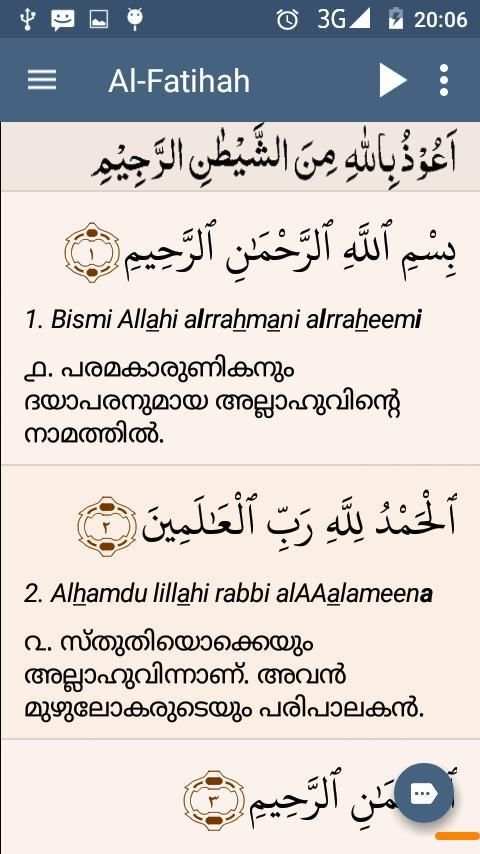 3G 20:06
Al-Fatihah
اَعُوْذُ بِاللّٰهِ مِنَ الشَّيْطٰنِ الرَّجِيْمِ
بِسْمِ ٱللَّهِ ٱلرَّحْمَـٰنِ ٱلرَّحِيمِ ١
1. Bismi Allahi alrrahmani alrraheemi
൧. പരമകാരുണികനും
ദയാപരനുമായ അല്ലാഹുവിന്റെ
നാമത്തില്‍.
ٱلْحَمْدُ لِلَّهِ رَبِّ ٱلْعَـٰلَمِينَ ٢
2. Alhamdu lillahi rabbi alAAalameena
൨. സ്തുതിയൊക്കെയും
അല്ലാഹുവിന്നാണ്. അവന്‍
മുഴുലോകരുടെയും പരിപാലകന്‍.
ٱلرَّحِيمِ ٣